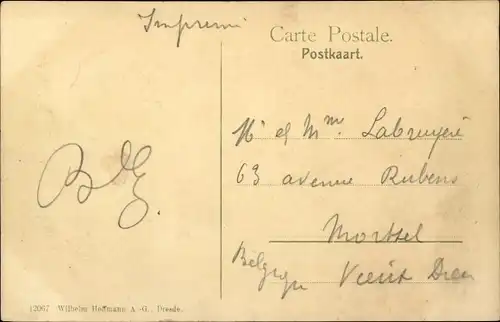 Imprimé
Carte Postale.
Postkaart.
Mr et Mme. Labruyère
63 avenue Rubens
Mortsel
Belgique Vieux Dieu
12067 Wilhelm Hoffmann A.-G., Dresde.